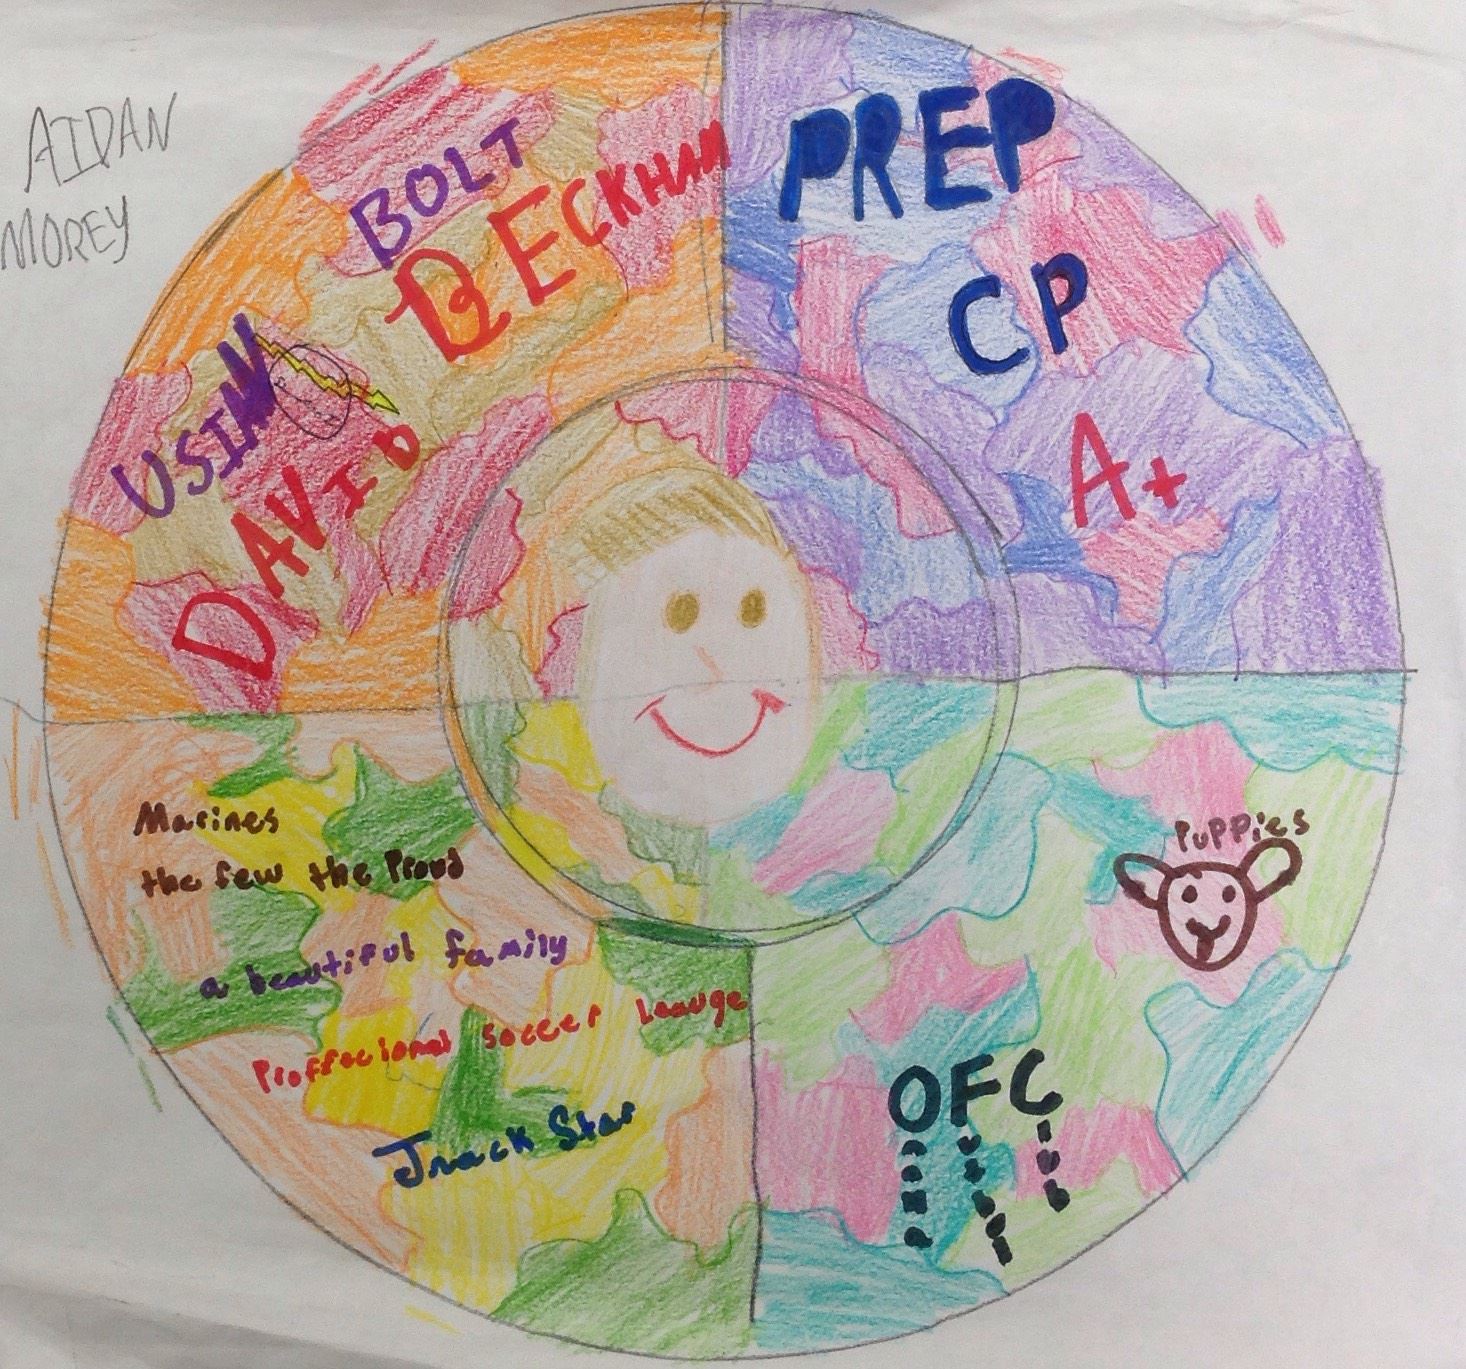 AIDAN
MOREY
USIN BOLT
DAVID BECKHAM
PREP
CP
A+
Marines
the few the Proud
a beautiful family
Proffecional Soccer Leauge
Track Star
Puppies
OFC